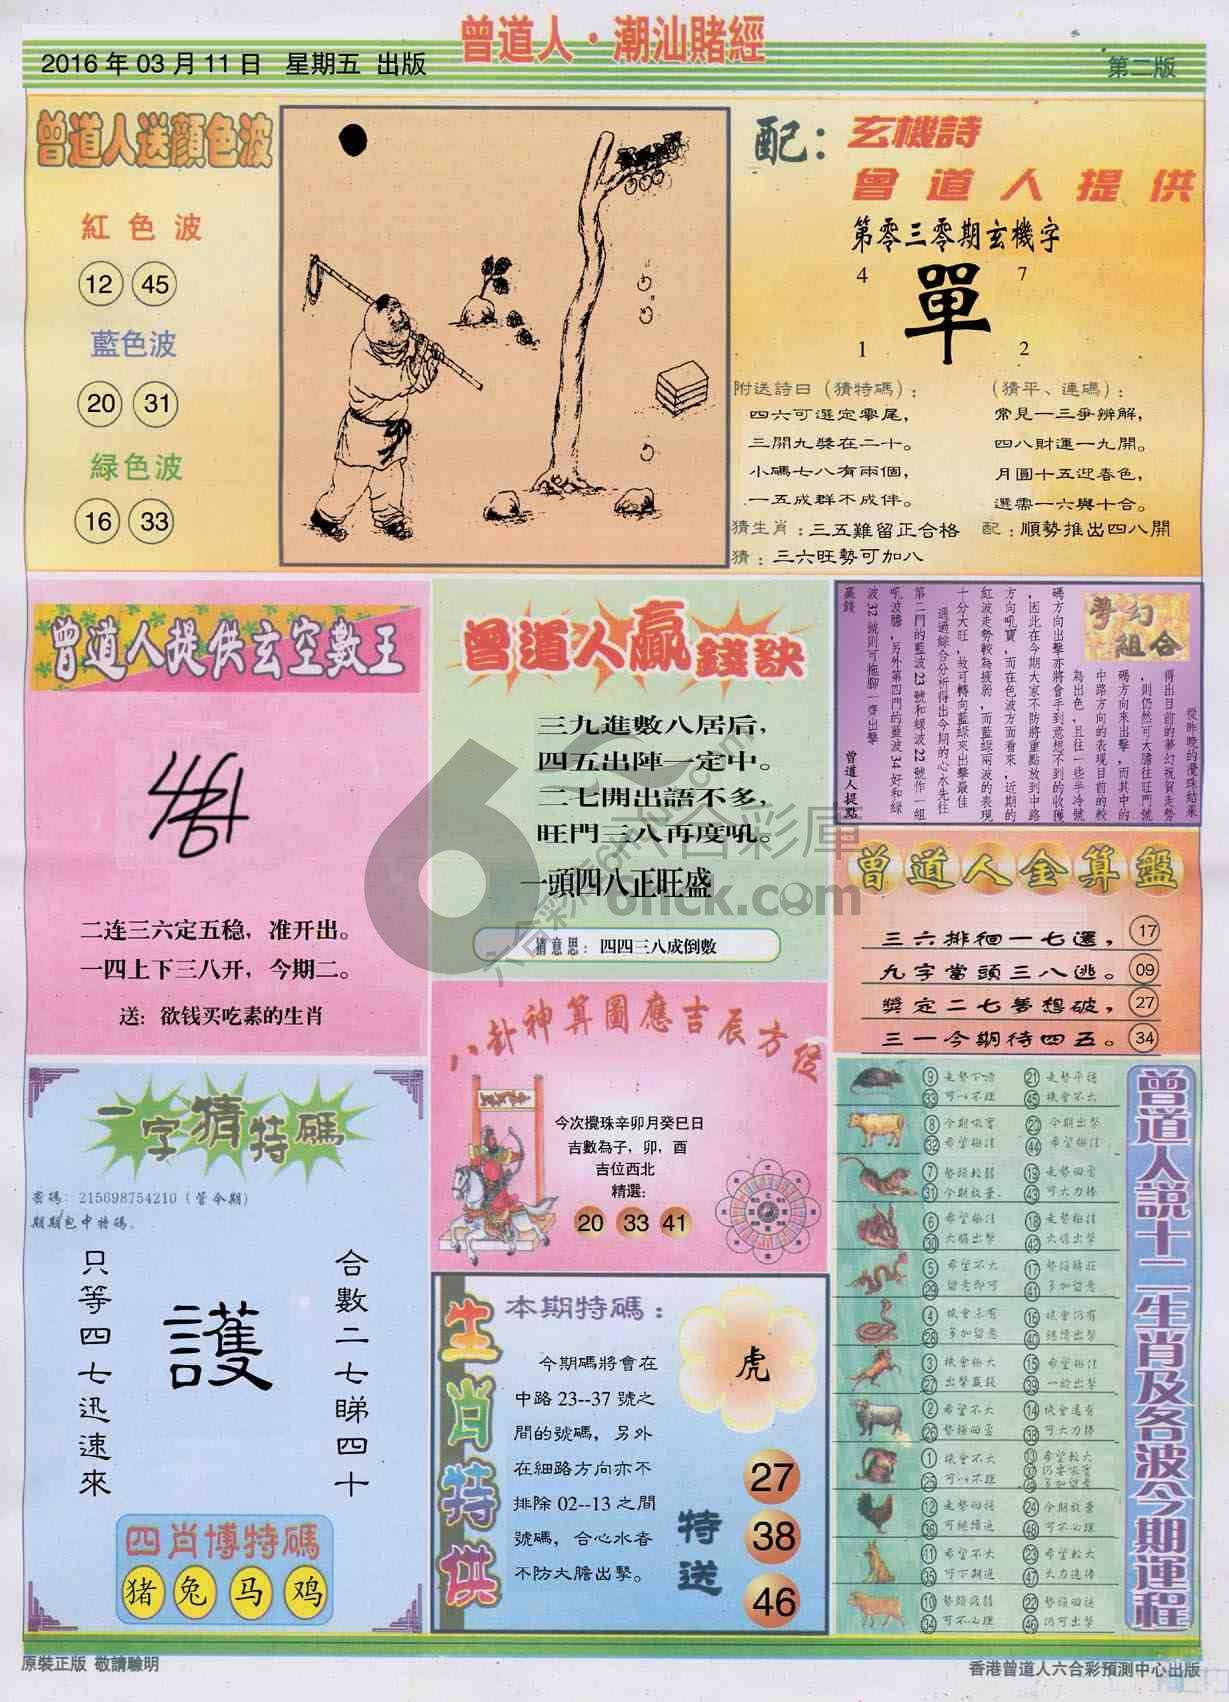 曾道人·潮汕賭經
2016年03月11日 星期五 出版
第二版
曾道人送顏色波
紅色波
12 45
藍色波
20 31
綠色波
16 33
配：玄機詩
曾道人提供
第零三零期玄機字
4 7
單
1 2
附送詩曰（猜特碼）：
四六可選定零尾，
三開九獎在二十。
小碼七八有兩個，
一五成群不成伴。
（猜平、連碼）：
常見一三爭辨解，
四八財運一九開。
月圓十五迎春色，
選需一六與十合。
猜生肖：三五難留正合格
配：順勢推出四八開
猜：三六旺勢可加八
曾道人提供玄空數王
二连三六定五稳，准开出。
一四上下三八开，今期二。
送：欲钱买吃素的生肖
曾道人贏錢訣
三九進數八居后，
四五出陣一定中。
二七開出語不多，
旺門三八再度吼。
一頭四八正旺盛
猜意思：四四三八成倒數
夢幻組合
從昨晚的攪珠結果
得出目前的夢幻祝賀走勢
，則仍然可大膽往旺門號
碼方向來出擊，而其中的
中路方向的表現目前的較
為出色，且往一些半冷號
碼方向出擊亦將會手到意想不到的收獲
，因此在今期大家不防將重點放到中路
方向吼寶，而在色波方面看來，近期的
紅波走勢較為疲弱，而藍綠兩波的表現
十分大旺，故可轉向藍綠來出擊最佳
通過綜合分析得出今期的心水先往
第二門的藍波23號和綠波22號作一組
吼波膽，另外第四門的藍波34好和綠
波32號則可拖腳一齊出擊
贏錢
曾道人提點
曾道人金算盤
三六排徊一七選， 17
九字當頭三八逃。 09
獎定二七夢想破， 27
三一今期待四五。 34
八卦神算圖應吉辰方位
今次攪珠辛卯月癸巳日
吉數為子，卯，酉
吉位西北
精選：
20 33 41
一字猜特碼
密碼：215698754210（管今期）
期期包中特碼。
合數二七睇四十
護
只等四七迅速來
四肖博特碼
猪 兔 马 鸡
生肖特供
本期特碼：
今期碼將會在
中路23--37號之
間的號碼，另外
在細路方向亦不
排除02--13之間
號碼，合心水者
不防大膽出擊。
虎
特送
27
38
46
曾道人說十二生肖及各波今期運程
9 走勢下滑 21 走勢平穩
33 可以不理 45 機會不大
8 今期吸寶 20 今期出擊
32 希望極佳 44 希望極佳
7 勢頭較弱 19 走勢回當
31 今期放棄 43 可大力捧
6 希望極佳 18 走勢極佳
30 大膽出擊 42 大膽出擊
5 希望不大 17
29 留意即可 41 多加留意
4 機會亦有 16 機會仍有
28 多加留意 40 繼續出擊
3 機會極大 15 希望極佳
27 出擊贏錢 39 一齊出擊
2 希望不大 14 機會還有
26 勢頭回當 38 可大力捧
1 機會不大 13 希望較大
25 可以不理 37
49 多加留意
12 走勢回穩 24 今期放棄
36 可繼續追 48 可不心理
11 希望不大 23 希望較大
35 可下期追 47 大力追捧
10 勢頭疲弱 22 勢頭回穩
34 可不心理 46 仍可出擊
六合彩庫
6hck.com
原裝正版 敬請驗明
香港曾道人六合彩預測中心出版